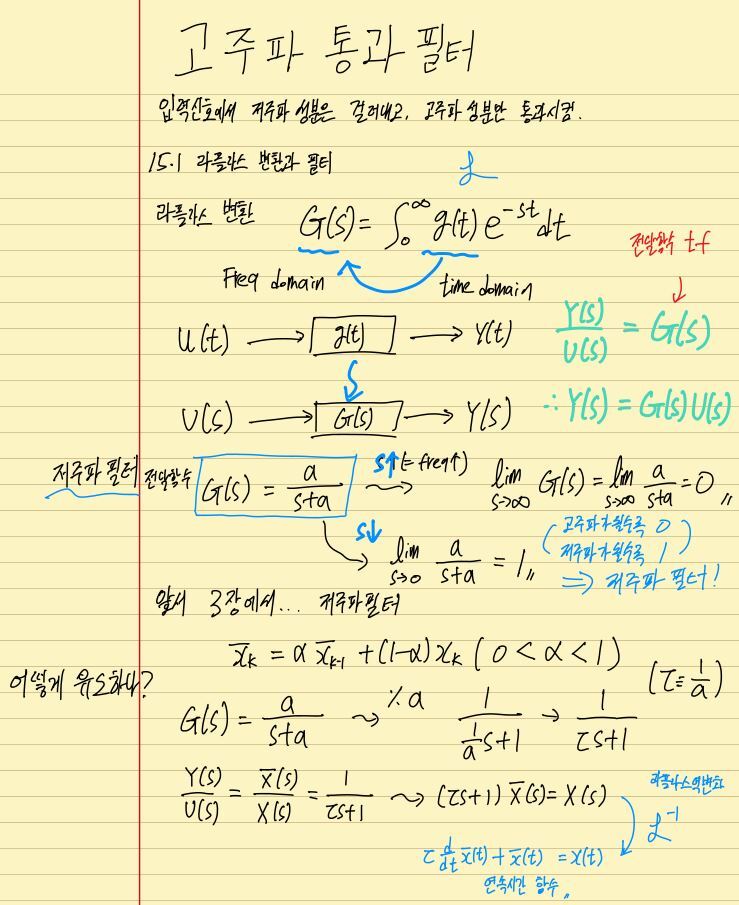 고주파 통과 필터
입력신호에서 저주파 성분은 걸러내고, 고주파 성분만 통과시킴.
15.1 라플라스 변환과 필터
ℒ
라플라스 변환 G(s) = ∫₀^∞ g(t) e^{-st} dt
Freq domain time domain
전달함수 t.f
U(t) → g(t) → Y(t)
Y(s)/U(s) = G(s)
U(s) → G(s) → Y(s)
∴ Y(s) = G(s)U(s)
저주파 필터 전달함수 G(s) = a/(s+a) s↑(= freq↑) lim_{s→∞} G(s) = lim_{s→∞} a/(s+a) = 0 〃
s↓ lim_{s→0} a/(s+a) = 1 〃
( 고주파가 될수록 0
저주파가 될수록 1 )
⇒ 저주파 필터!
앞서 3장에서... 저주파필터
x̄_k = α x̄_{k-1} + (1-α) x_k ( 0 < α < 1 )
어떻게 유도하나?
(τ ≡ 1/a)
G(s) = a/(s+a) ⤳ ٪a 1/((1/a)s+1) → 1/(τs+1)
Y(s)/U(s) = X̄(s)/X(s) = 1/(τs+1) ⤳ (τs+1) X̄(s) = X(s)
라플라스역변환
ℒ⁻¹
τ d/dt x̄(t) + x̄(t) = x(t)
연속시간 함수 〃